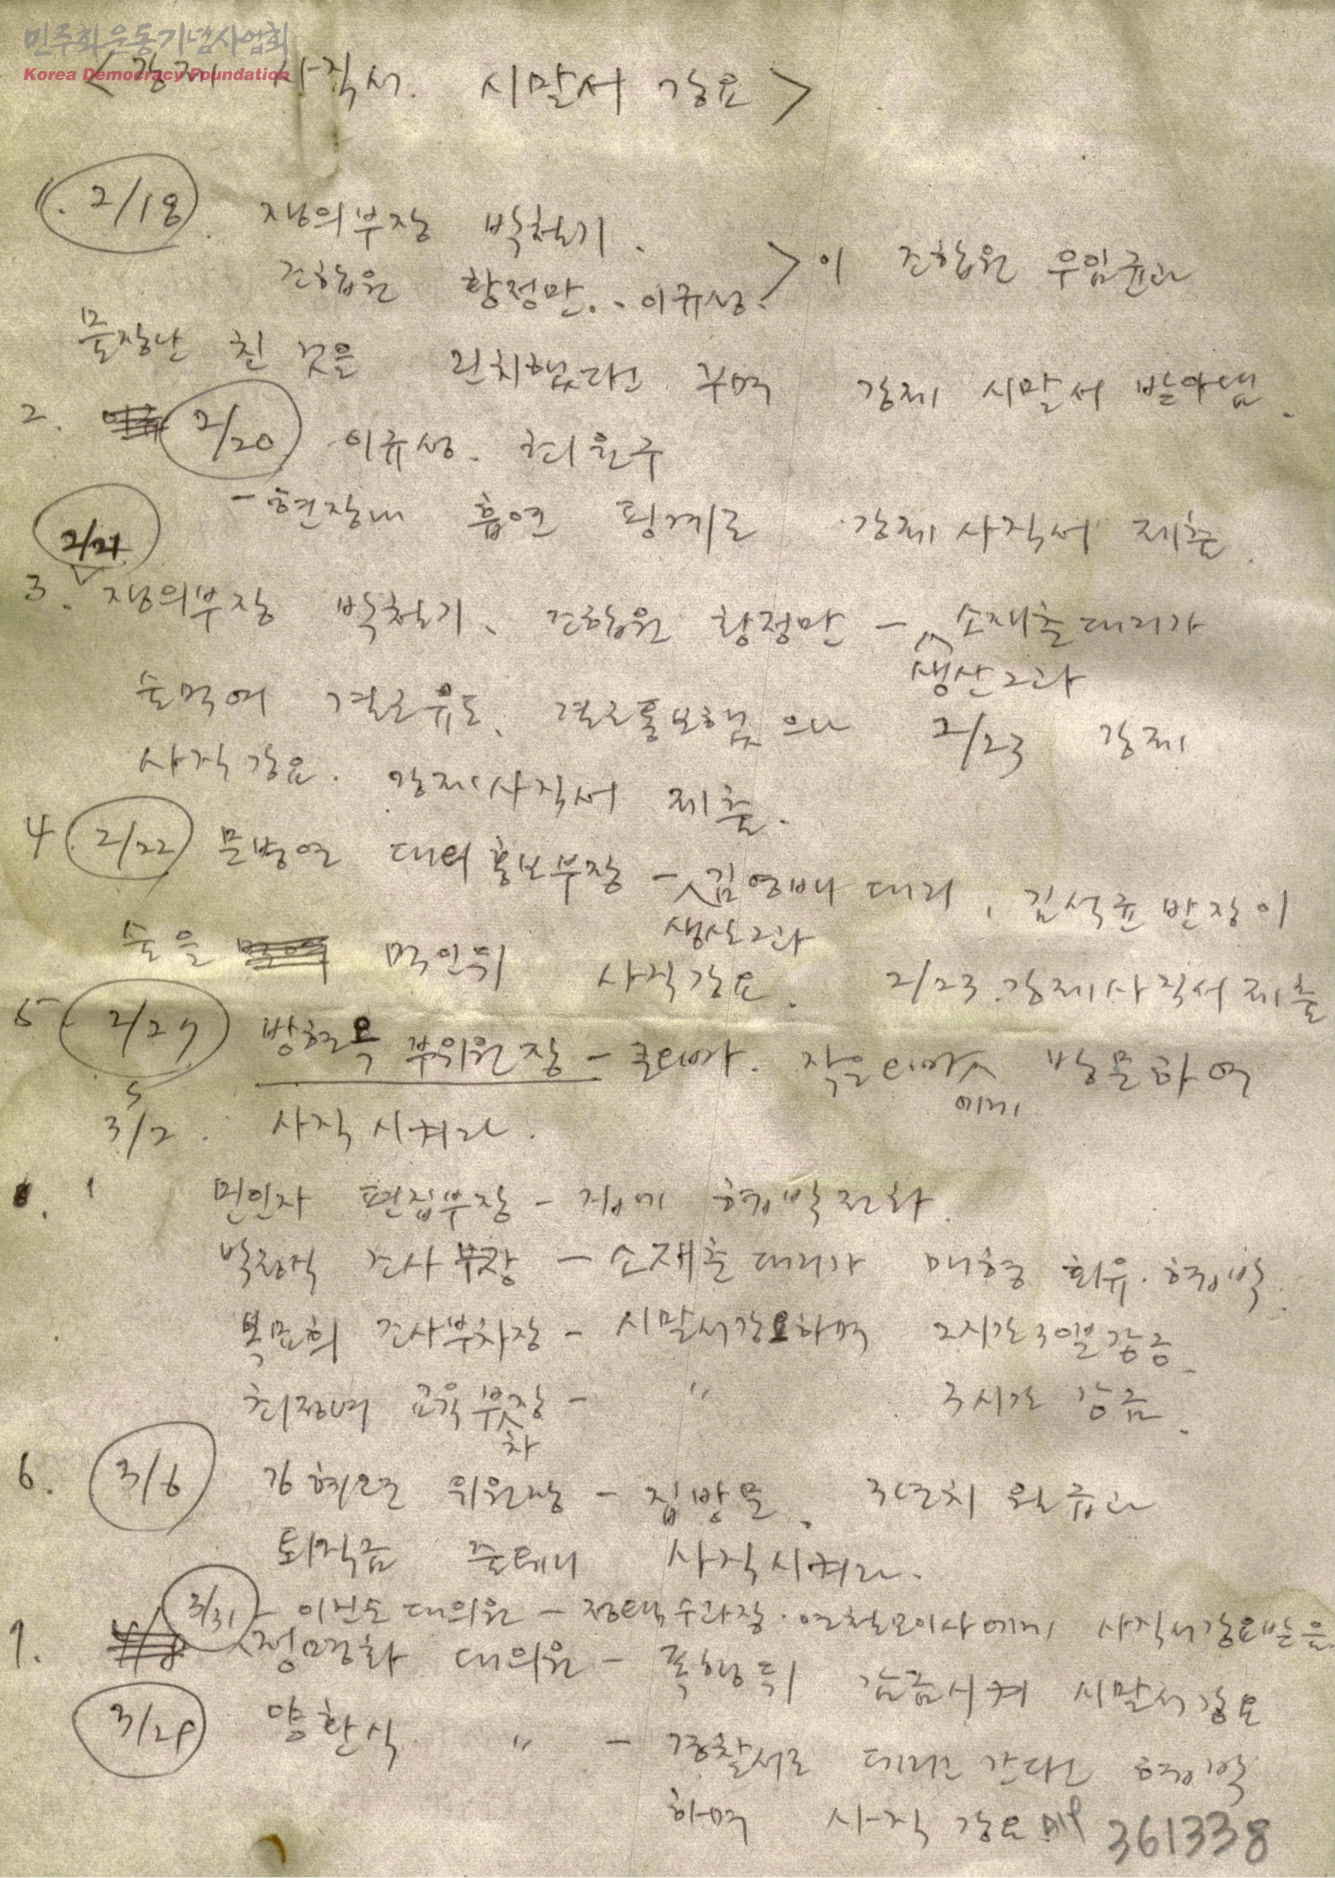 민주화운동기념사업회
Korea Democracy Foundation
<강제 사직서. 시말서 강요>
1. 2/18. 쟁의부장 박철기.
조합원 황정만. 이규성. > 이 조합원 우임균과
물장난 친 것을 린치했다고 꾸며 강제 시말서 받아냄.
2. 2/20 이규성. 최원구
- 현장내 흡연 핑계로 강제 사직서 제출.
2/21
3. 쟁의부장 박철기, 조합원 황정만 - 생산2과 소재춘대리가
술먹여 결근유도, 결근통보했으나 2/23 강제
사직강요. 강제사직서 제출.
4. 2/22 문병연 대의 홍보부장 - 생산2과 김영배 대리, 김석균 반장이
술을 먹인뒤 사직강요. 2/23. 강제사직서 제출
5. 2/27 방현옥 부위원장 - 큰아빠. 작은아빠에게 방문하여
3/2. 사직시켜라.
민인자 편집부장 - 집에 협박전화.
조사부장 - 소재춘대리가 매형 회유. 협박.
조사부차장 - 시말서강요하며 2시간 감금.
최정녀 교육부차장 - 〃 3시간 감금.
6. 3/6 위원장 - 집방문, 3년치 월급과
퇴직금 줄테니 사직시켜라.
3/31 - 대의원 - 에게 사직서강요받음
7. 정명화 대의원 - 폭행뒤 감금시켜 시말서강요
3/29 양한식 〃 - 경찰서로 데리고 간다고 협박
하며 사직 강요
361338